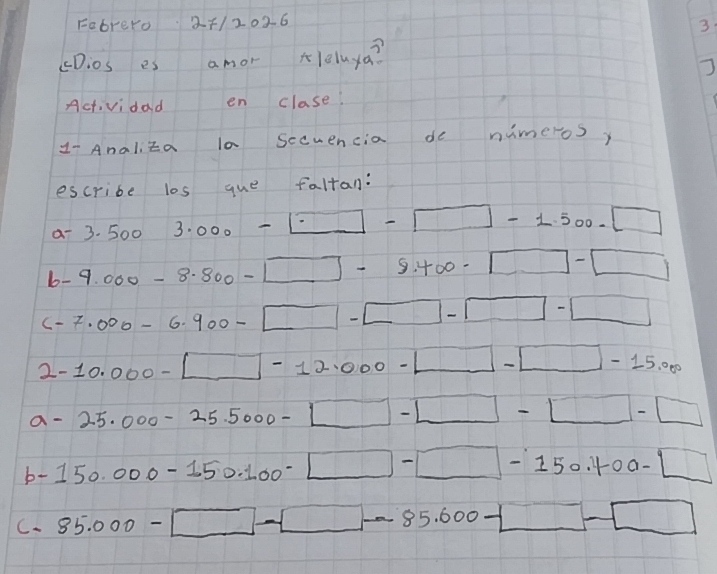 Febrero 27/2026
¿Dios es amor Aleluya?
Actividad en clase:
1- Analiza la secuencia de números y
escribe los que faltan:
a- 3.500 3.000 - - - 1.500 -
b- 9.000 - 8.800 - - 8.400 - -
c- 7.000 - 6.900 - - - -
2- 10.000 - - 12.000 - - - 15.000
a- 25.000 - 25.5000 - - - -
b- 150.000 - 150.100 - - - 150.400 -
c- 85.000 - - - 85.600 - -
3.